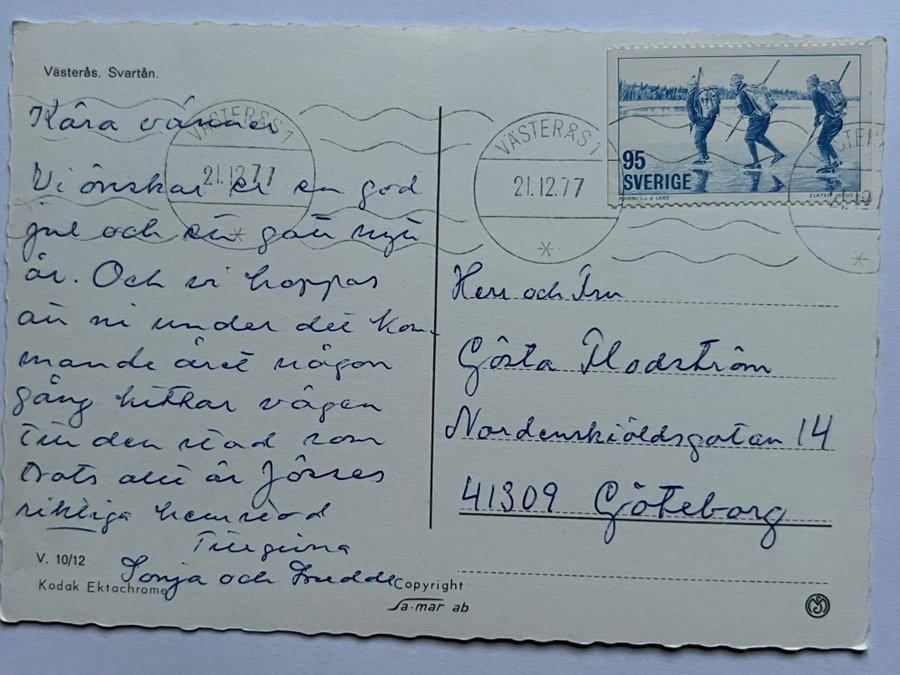 Västerås. Svartån.
Kära vänner
Vi önskar er en god
jul och ett gott nytt
år. Och vi hoppas
att ni under det kom-
mande året någon
gång hittar vägen
till den stad som
trots allt är Jösses
riktiga hemstad
Tillgivna
Sonja och Fredde
V. 10/12
Kodak Ektachrome
Copyright
Sa-mar ab
VÄSTERÅS 1
21.12.77
VÄSTERÅS 1
21.12.77
95
SVERIGE
Herr och Fru
Gösta Flodström
Nordenskiöldsgatan 14
41309 Göteborg